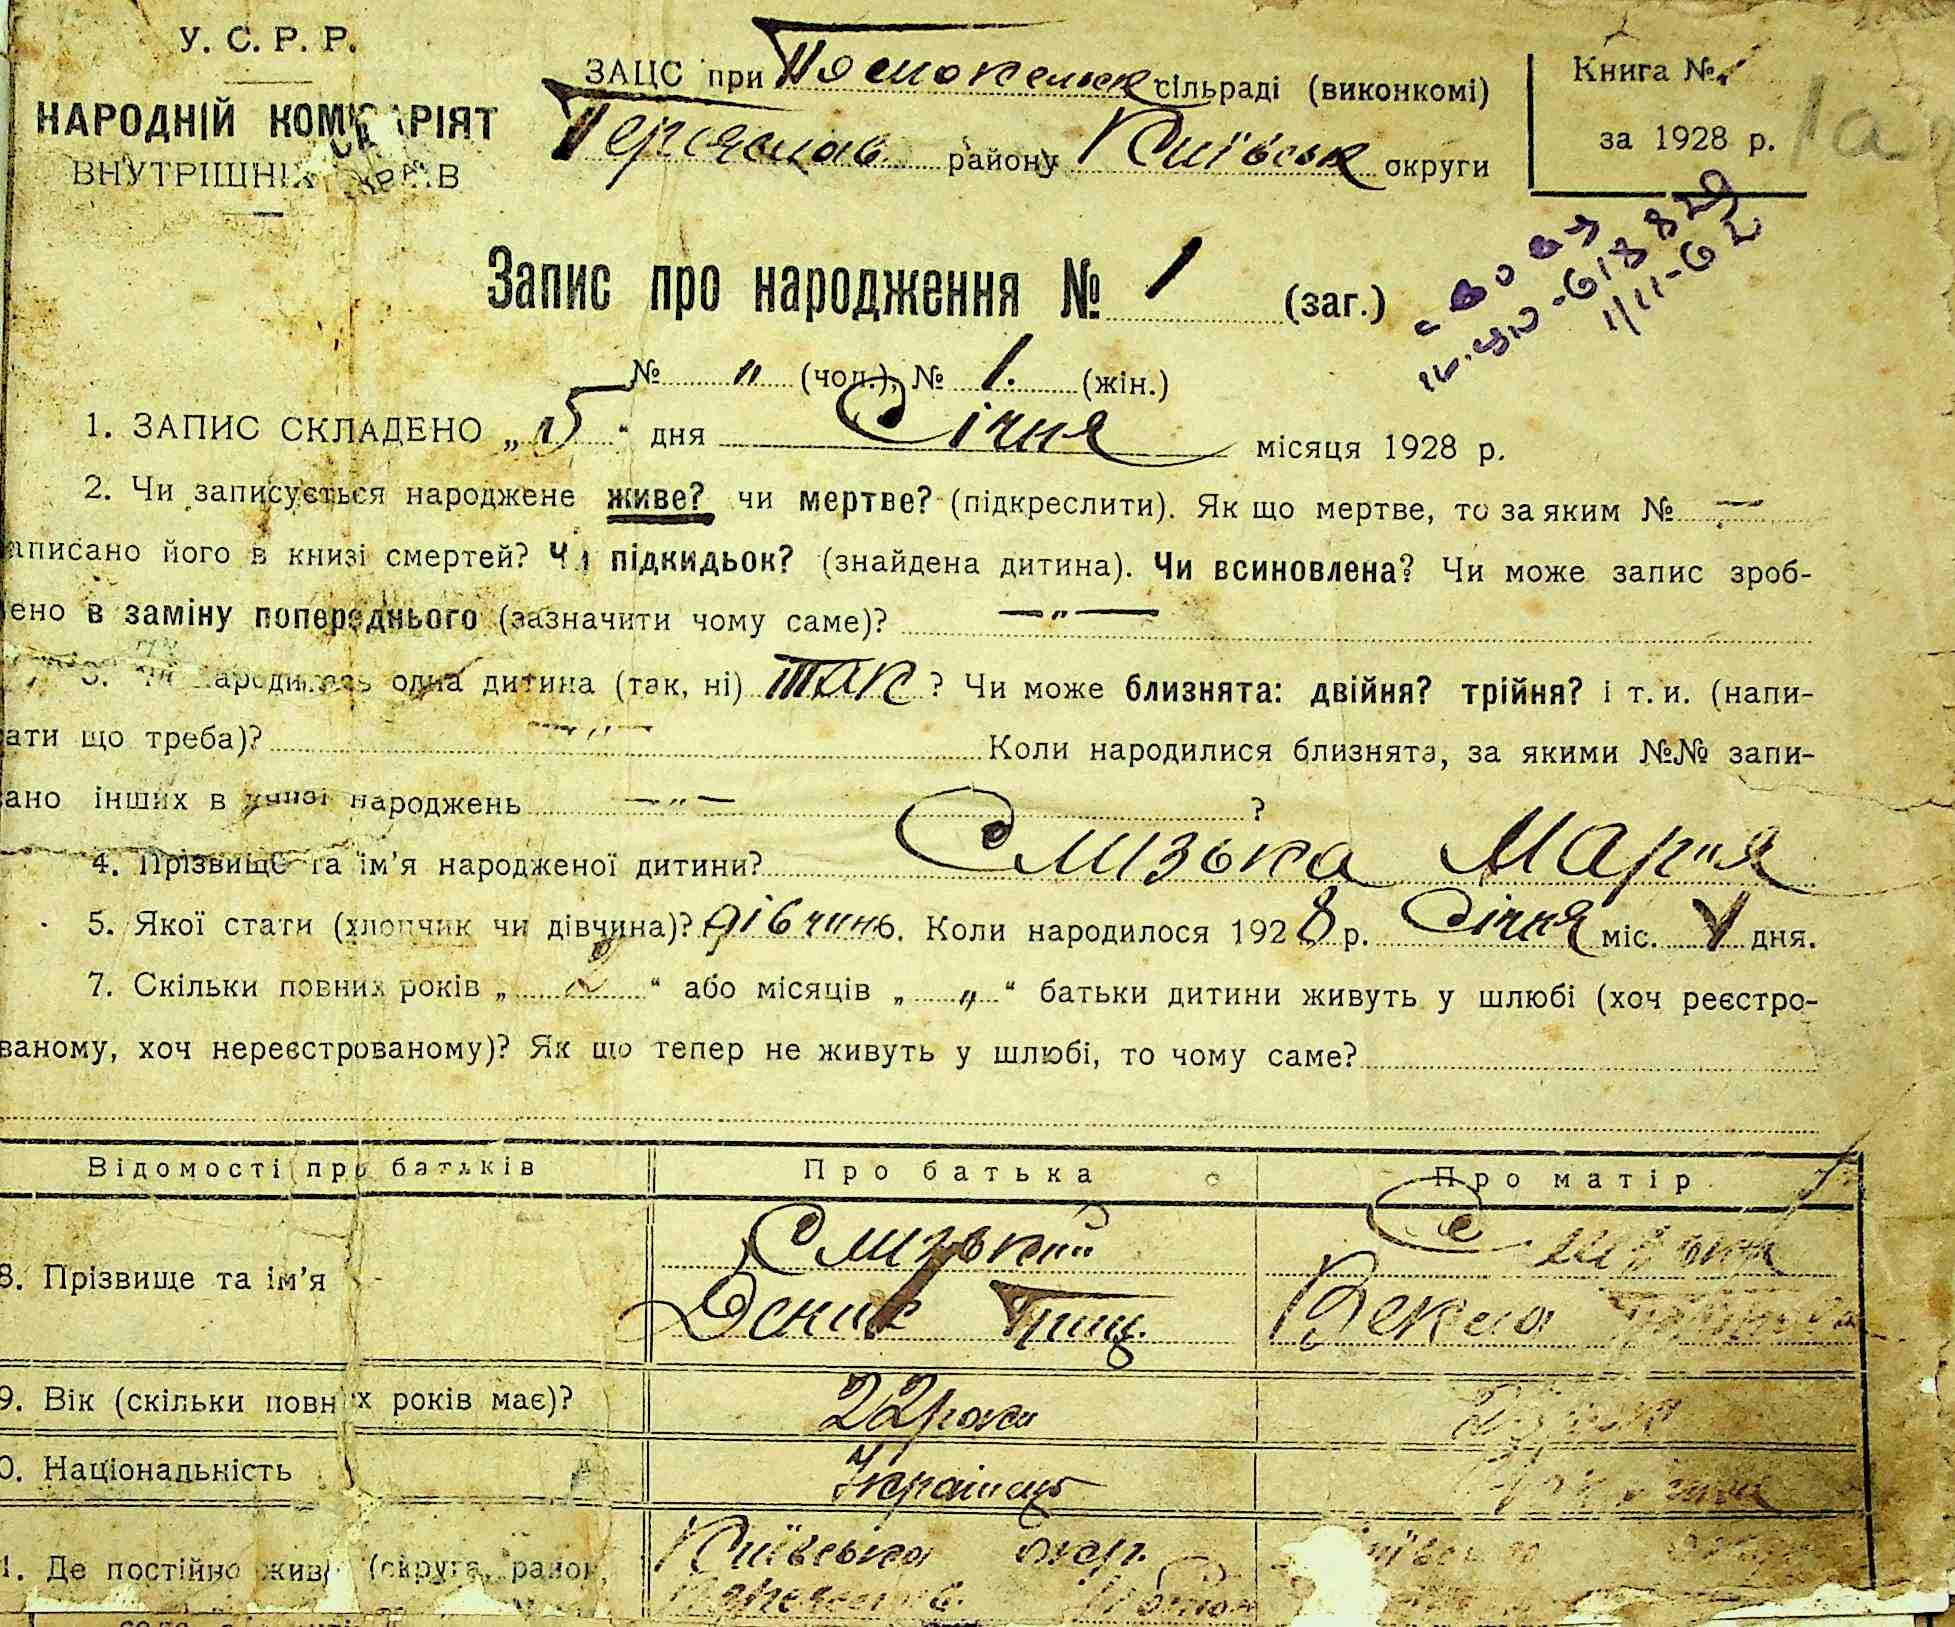 У. С. Р. Р.
НАРОДНІЙ КОМІСАРІЯТ
ВНУТРІШНІХ СПРАВ
ЗАЦС при сільраді (виконкомі)
Переяслав. району Київськ округи
Книга № 1
за 1928 р.
1а
Запис про народження № 1 (заг.)
№ " (чол.), № 1. (жін.)
1. ЗАПИС СКЛАДЕНО „15“ дня Січня місяця 1928 р.
2. Чи записується народжене живе? чи мертве? (підкреслити). Як що мертве, то за яким № —
аписано його в книзі смертей? Чи підкидьок? (знайдена дитина). Чи всиновлена? Чи може запис зроб-
ено в заміну попереднього (зазначити чому саме)? —"—
3. Чи народилась одна дитина (так, ні) так? Чи може близнята: двійня? трійня? і т. и. (напи-
ати що треба)? —"— Коли народилися близнята, за якими №№ запи-
ано інших в книзі народжень —"— ?
4. Прізвище та ім’я народженої дитини? Слизька Марія
5. Якої стати (хлопчик чи дівчина)? дівчина. Коли народилося 1928 р. Січня міс. дня.
7. Скільки повних років „ 2 “ або місяців „ " “ батьки дитини живуть у шлюбі (хоч реєстро-
ваному, хоч нереєстрованому)? Як що тепер не живуть у шлюбі, то чому саме?
Відомості про батьків Про батька Про матір
Слизький
8. Прізвище та ім’я
Денис Гриц. Векла
9. Вік (скільки повних років має)? 22 роки
0. Національність Українець
Київська окр. Київська
1. Де постійно живе (округа, район,